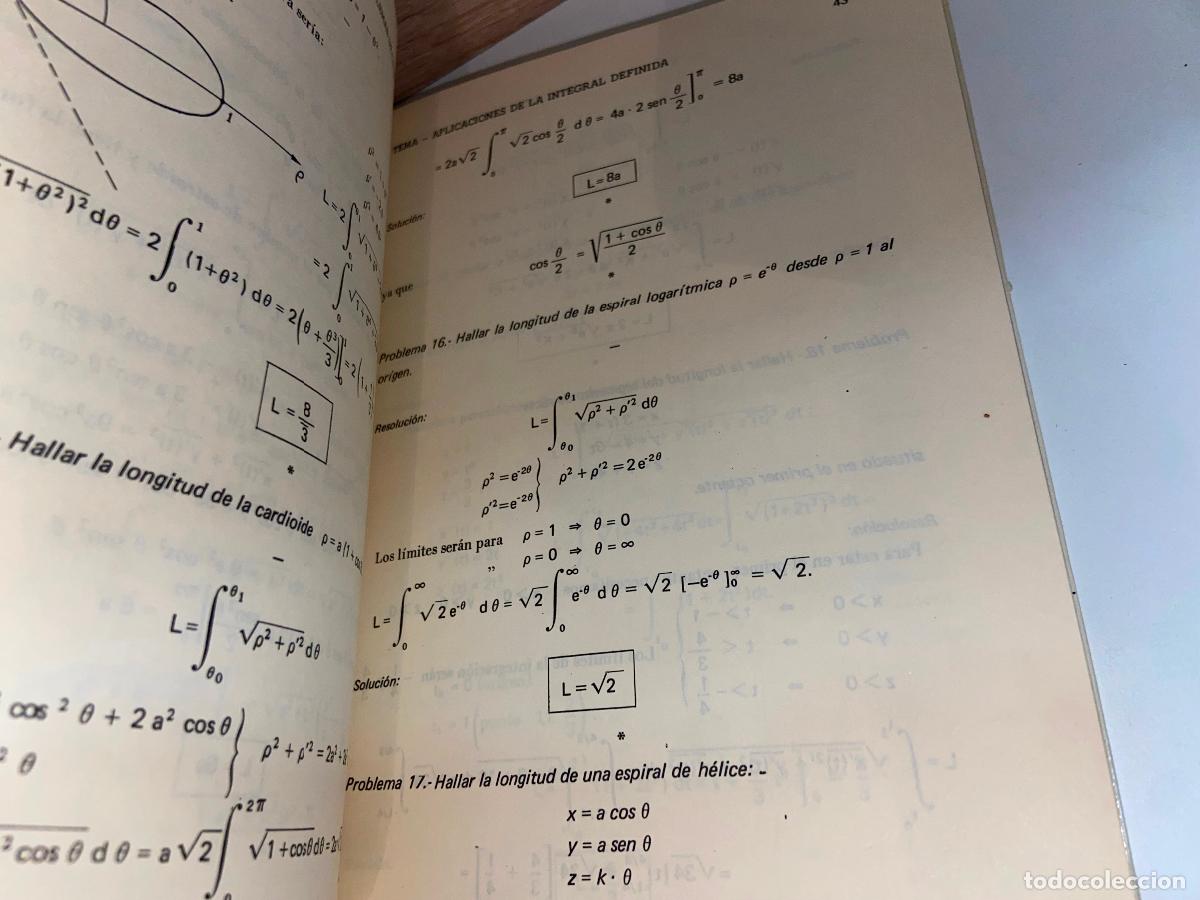 1
ρ
a sería:
1+θ²)² dθ = 2 ∫₀¹ (1+θ²) dθ = 2(θ + θ³/3)]₀¹
L = 8/3
*
Hallar la longitud de la cardioide ρ = a (1 + cos
–
L = ∫_θ₀^θ₁ √ρ² + ρ'² dθ
cos² θ + 2 a² cos θ } ρ² + ρ'² = 2a² +
² θ
² cos θ d θ = a √2 ∫₀^2π √1 + cos θ dθ =
TEMA – APLICACIONES DE LA INTEGRAL DEFINIDA
= 2a √2 ∫₀^π √2 cos θ/2 d θ = 4a · 2 sen θ/2 ]₀^π = 8a
Solución: L = 8a
*
ya que cos θ/2 = √(1 + cos θ)/2
*
Problema 16.- Hallar la longitud de la espiral logarítmica ρ = e^-θ desde ρ = 1 al
orígen.
–
Resolución: L = ∫_θ₀^θ₁ √ρ² + ρ'² dθ
ρ² = e^-2θ } ρ² + ρ'² = 2 e^-2θ
ρ'² = e^-2θ
Los límites serán para ρ = 1 ⇒ θ = 0
,, ρ = 0 ⇒ θ = ∞
L = ∫₀^∞ √2 e^-θ d θ = √2 ∫₀^∞ e^-θ d θ = √2 [−e^-θ]₀^∞ = √2.
Solución: L = √2
*
Problema 17.- Hallar la longitud de una espiral de hélice: –
x = a cos θ
y = a sen θ
z = k · θ
todocoleccion